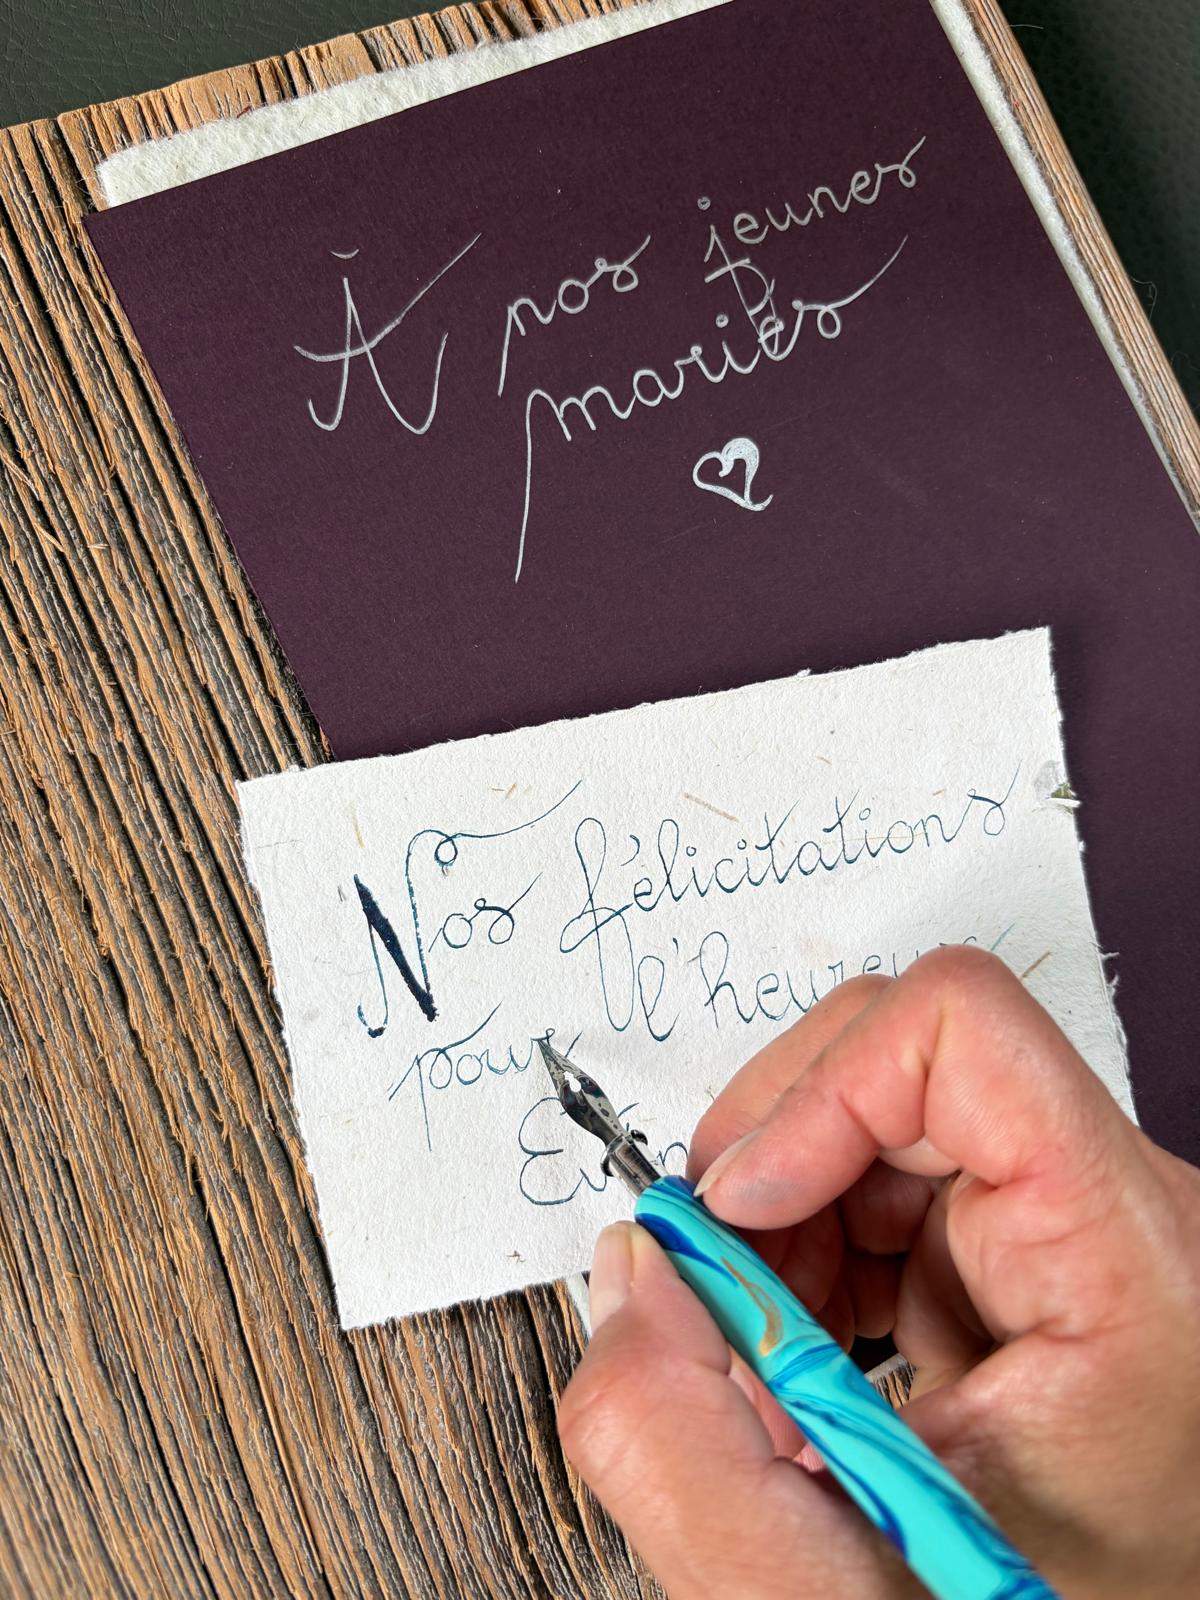 À nos jeunes
mariés
Nos félicitations
pour l'heureux